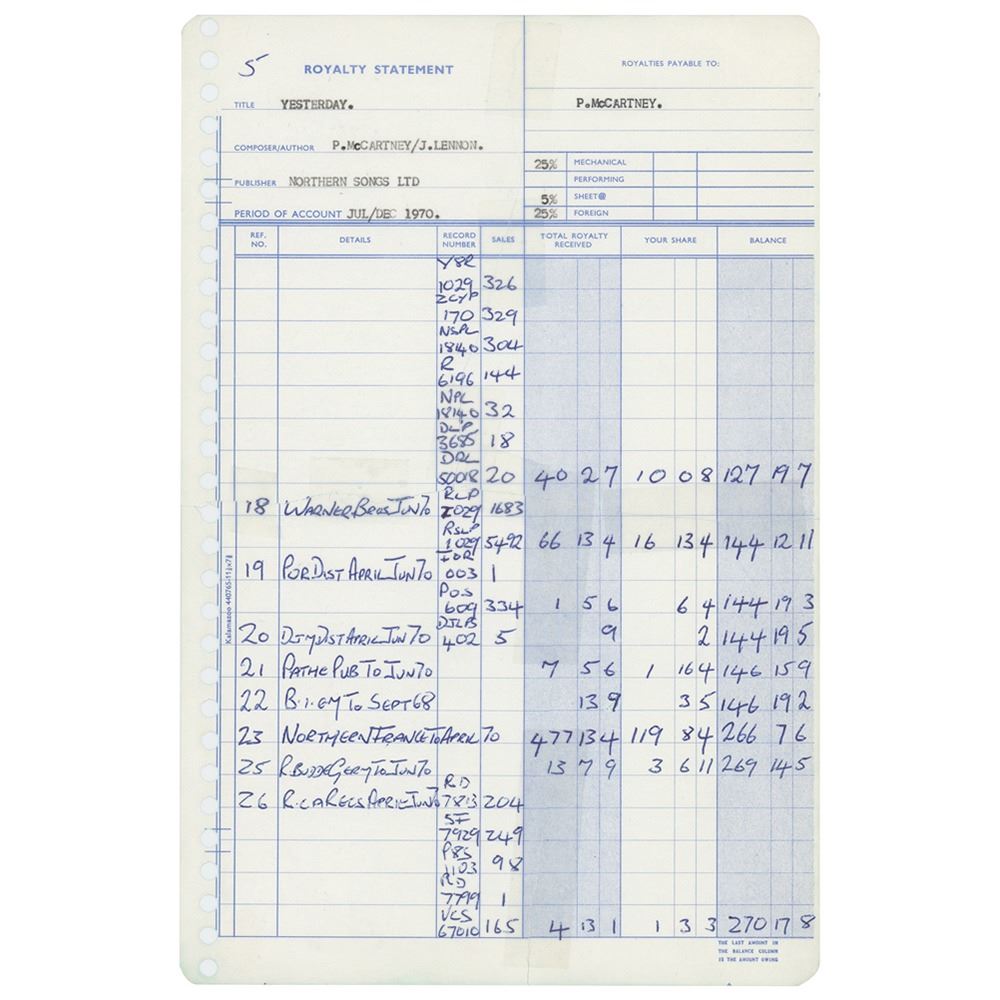 5 ROYALTY STATEMENT
ROYALTIES PAYABLE TO:
TITLE YESTERDAY.
P.McCARTNEY.
COMPOSER/AUTHOR P.McCARTNEY/J.LENNON.
25% MECHANICAL
PERFORMING
PUBLISHER NORTHERN SONGS LTD
5% SHEET@
PERIOD OF ACCOUNT JUL/DEC 1970.
25% FOREIGN
REF. NO. DETAILS RECORD NUMBER SALES TOTAL ROYALTY RECEIVED YOUR SHARE BALANCE
YSR
1029 326
ZCYP
170 329
NSPL
18140 304
R
6196 144
NPL
18140 32
DLP
3685 18
DRL
5008 20 40 2 7 10 0 8 127 19 7
RLP
18 WARNER BROS JUN 70 1029 1683
RSLP
1029 5492 66 13 4 16 13 4 144 12 11
19 POR.DIST APRIL JUN 70 003 1
POS
609 334 1 5 6 6 4 144 19 3
DJLPS
20 DJM DIST APRIL JUN 70 402 5 9 2 144 19 5
21 PATHE PUB TO JUN 70 7 5 6 1 16 4 146 15 9
22 B.I.EM TO SEPT 68 13 9 3 5 146 19 2
23 NORTHERN FRANCE TO APRIL 70 477 13 4 119 8 4 266 7 6
25 R. BUDDE GERY TO JUN 70 13 7 9 3 6 11 269 14 5
RD
26 R.C.A RECS APRIL JUN 70 7813 204
SF
7929 249
PBS
1103 98
RD
7799 1
VCS
67010 165 4 13 1 1 3 3 270 17 8
Kalamazoo
THE LAST AMOUNT IN
THE BALANCE COLUMN
IS THE AMOUNT OWING